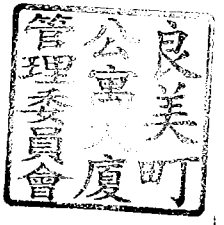 良美町
公寓大廈
管理委員會